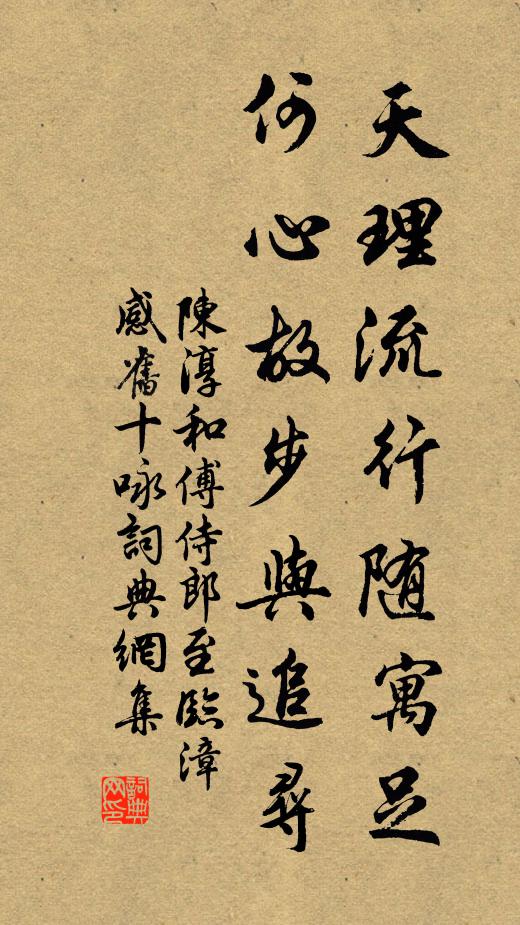 天理流行随寓足
何心故步與追尋
陳淳和傅侍郎至臨漳
感舊十咏詞典網集
詞典网印